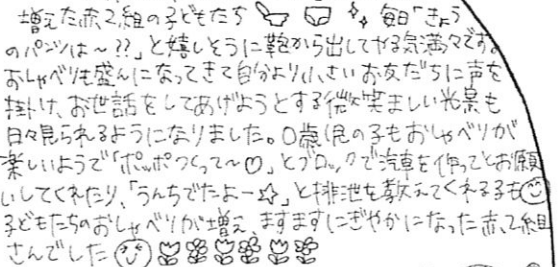 増えた赤2組の子どもたち 毎日「きょう
のパンツは〜??」と嬉しそうに鞄から出してやる気満々です。
おしゃべりも盛んになってきて自分より小さいお友だちに声を
掛け、お世話をしてあげようとする微笑ましい光景も
日々見られるようになりました。0歳児の子もおしゃべりが
楽しいようで「ポッポつくって〜♡」とブロックで汽車を作ってとお願
いしてくれたり、「うんちでたよー☆」と排泄を教えてくれる子も
子どもたちのおしゃべりが増え、ますますにぎやかになった赤2組
さんでした